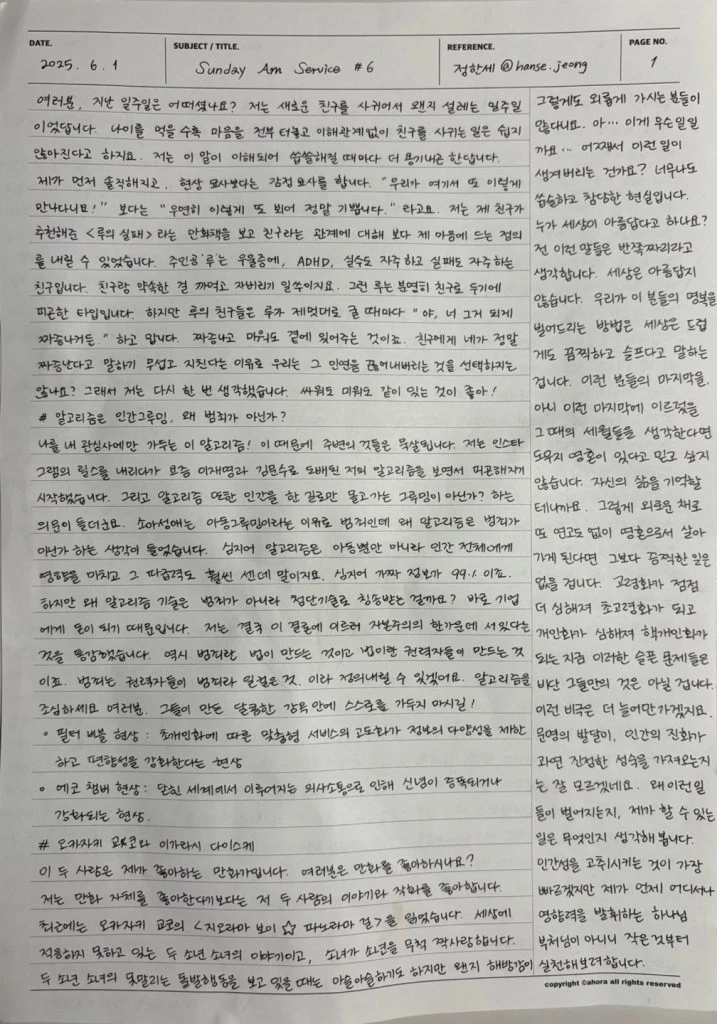 DATE.
2025. 6. 1
SUBJECT / TITLE.
Sunday Am Service #6
REFERENCE.
정한세 @hanse.jeong
PAGE NO.
1
여러분, 지난 일주일은 어떠셨나요? 저는 새로운 친구를 사귀어서 왠지 설레는 일주일
이었답니다. 나이를 먹을 수록 마음을 전부 터놓고 이해관계없이 친구를 사귀는 일은 쉽지
않아진다고 하지요. 저는 이 말이 이해되어 씁쓸해질 때마다 더 용기내곤 한답니다.
제가 먼저 솔직해지고. 현상 묘사보다는 감정 묘사를 합니다. "우리가 여기서 또 이렇게
만나다니요!" 보다는 "우연히 이렇게 또 뵈어 정말 기쁩니다." 라고요. 저는 제 친구가
추천해준 <루의 실패> 라는 만화책을 보고 친구라는 관계에 대해 보다 제 마음에 드는 정의
를 내릴 수 있었습니다. 주인공 '루'는 우울증에, ADHD, 실수도 자주 하고 실패도 자주하는
친구입니다. 친구랑 약속한 걸 까먹고 자버리기 일쑤이지요. 그런 루는 분명히 친구로 두기에
피곤한 타입입니다. 하지만 루의 친구들은 루가 제멋대로 굴 때마다 "야, 너 그거 되게
짜증나거든." 하고 맙니다. 짜증나고 미워도 곁에 있어주는 것이죠. 친구에게 네가 정말
짜증난다고 말하기 무섭고 지친다는 이유로 우리는 그 인연을 끊어내버리는 것을 선택하지는
않나요? 그래서 저는 다시 한 번 생각했습니다. 싸워도 미워도 같이 있는 것이 좋아!
# 알고리즘은 인간그루밍, 왜 범죄가 아닌가?
나를 내 관심사에만 가두는 이 알고리즘! 이 때문에 주변의 것들은 묵살됩니다. 저는 인스타
그램의 릴스를 내리다가 요즘 이재명과 김문수로 도배된 저의 알고리즘을 보면서 피곤해지기
시작했습니다. 그리고 알고리즘 또한 인간을 한 길로만 몰고가는 그루밍이 아닌가? 하는
의문이 들더군요. 소아성애는 아동그루밍이라는 이유로 범죄인데 왜 알고리즘은 범죄가
아닌가 하는 생각이 들었습니다. 심지어 알고리즘은 아동뿐만 아니라 인간 전체에게
영향을 미치고 그 파급력도 훨씬 센데 말이지요. 심지어 가짜 정보가 99.% 이죠.
하지만 왜 알고리즘 기술은 범죄가 아니라 첨단기술로 칭송받는 걸까요? 바로 기업
에게 돈이 되기 때문입니다. 저는 결국 이 결론에 이르러 자본주의의 한가운데 서있다는
것을 통감했습니다. 역시 범죄란 법이 만드는 것이고 법이란 권력자들이 만드는 것
이죠. 범죄는 권력자들이 범죄라 일컬은 것. 이라 정의내릴 수 있겠어요. 알고리즘을
조심하세요 여러분. 그들이 만든 달콤한 감옥 안에 스스로를 가두지 마시길!
• 필터 버블 현상 : 초개인화에 따른 맞춤형 서비스의 고도화가 정보의 다양성을 제한
하고 편향성을 강화한다는 현상
• 에코 챔버 현상 : 닫힌 세계에서 이루어지는 의사소통으로 인해 신념이 증폭되거나
강화되는 현상.
# 오카자키 쿄코와 이가라시 다이스케
이 두 사람은 제가 좋아하는 만화가입니다. 여러분은 만화를 좋아하시나요?
저는 만화 자체를 좋아한다기보다는 저 두 사람의 이야기와 작화를 좋아합니다.
최근에는 오카자키 쿄코의 <지오라마 보이 ☆ 파노라마 걸> 을 읽었습니다. 세상에
적응하지 못하고 있는 두 소년 소녀의 이야기이고, 소녀가 소년을 무척 짝사랑합니다.
두 소년 소녀의 못말리는 돌발행동을 보고 있을 때는 아슬아슬하기도 하지만 왠지 해방감이
그렇게도 외롭게 가시는 분들이
많다니요. 아… 이게 무슨일일
까요… 어째서 이런 일이
생겨버리는 건가요? 너무나도
씁쓸하고 참담한 현실입니다.
누가 세상이 아름답다고 하나요?
전 이런 말들은 반쪽짜리라고
생각합니다. 세상은 아름답지
않습니다. 우리가 이 분들의 명복을
빌어드리는 방법은 세상은 드럽
게도 끔찍하고 슬프다고 말하는
겁니다. 이런 분들의 마지막을.
아니 이런 마지막에 이르렀을
그 때의 세월들을 생각한다면
도무지 영혼이 있다고 믿고 싶지
않습니다. 자신의 삶을 기억할
테니까요. 그렇게 외로운 채로
또 연고도 없이 영혼으로서 살아
가게 된다면 그보다 끔찍한 일은
없을 겁니다. 고령화가 점점
더 심해져 초고령화가 되고
개인화가 심해져 핵개인화가
되는 지금 이러한 슬픈 문제들은
비단 그들만의 것은 아닐 겁니다.
이런 비극은 더 늘어만 가겠지요.
문명의 발달이, 인간의 진화가
과연 진정한 성숙을 가져오는지
는 잘 모르겠네요. 왜 이런 일
들이 벌어지는지, 제가 할 수 있는
일은 무엇인지 생각해 봅니다.
인간성을 고취시키는 것이 가장
빠르겠지만 제가 언제 어디서나
영향력을 발휘하는 하나님
부처님이 아니니 작은 것부터
실천해보려합니다.
copyright ©ahora all rights reserved